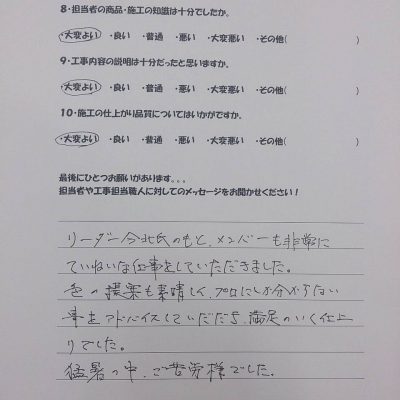 8・担当者の商品・施工の知識は十分でしたか。
・大変よい ・良い ・普通 ・悪い ・大変悪い ・その他( )
9・工事内容の説明は十分だったと思いますか。
・大変よい ・良い ・普通 ・悪い ・大変悪い ・その他( )
10・施工の仕上がり品質についてはいかがですか。
・大変よい ・良い ・普通 ・悪い ・大変悪い ・その他( )
最後にひとつお願いがあります。。。
担当者や工事担当職人に対してのメッセージをお聞かせください！
リーダー今北氏のもと、メンバーも非常に
ていねいな仕事をしていただきました。
色の提案も素晴しく、プロにしか分からない
事をアドバイスしていただき、満足のいく仕上
りでした。
猛暑の中、ご苦労様でした。